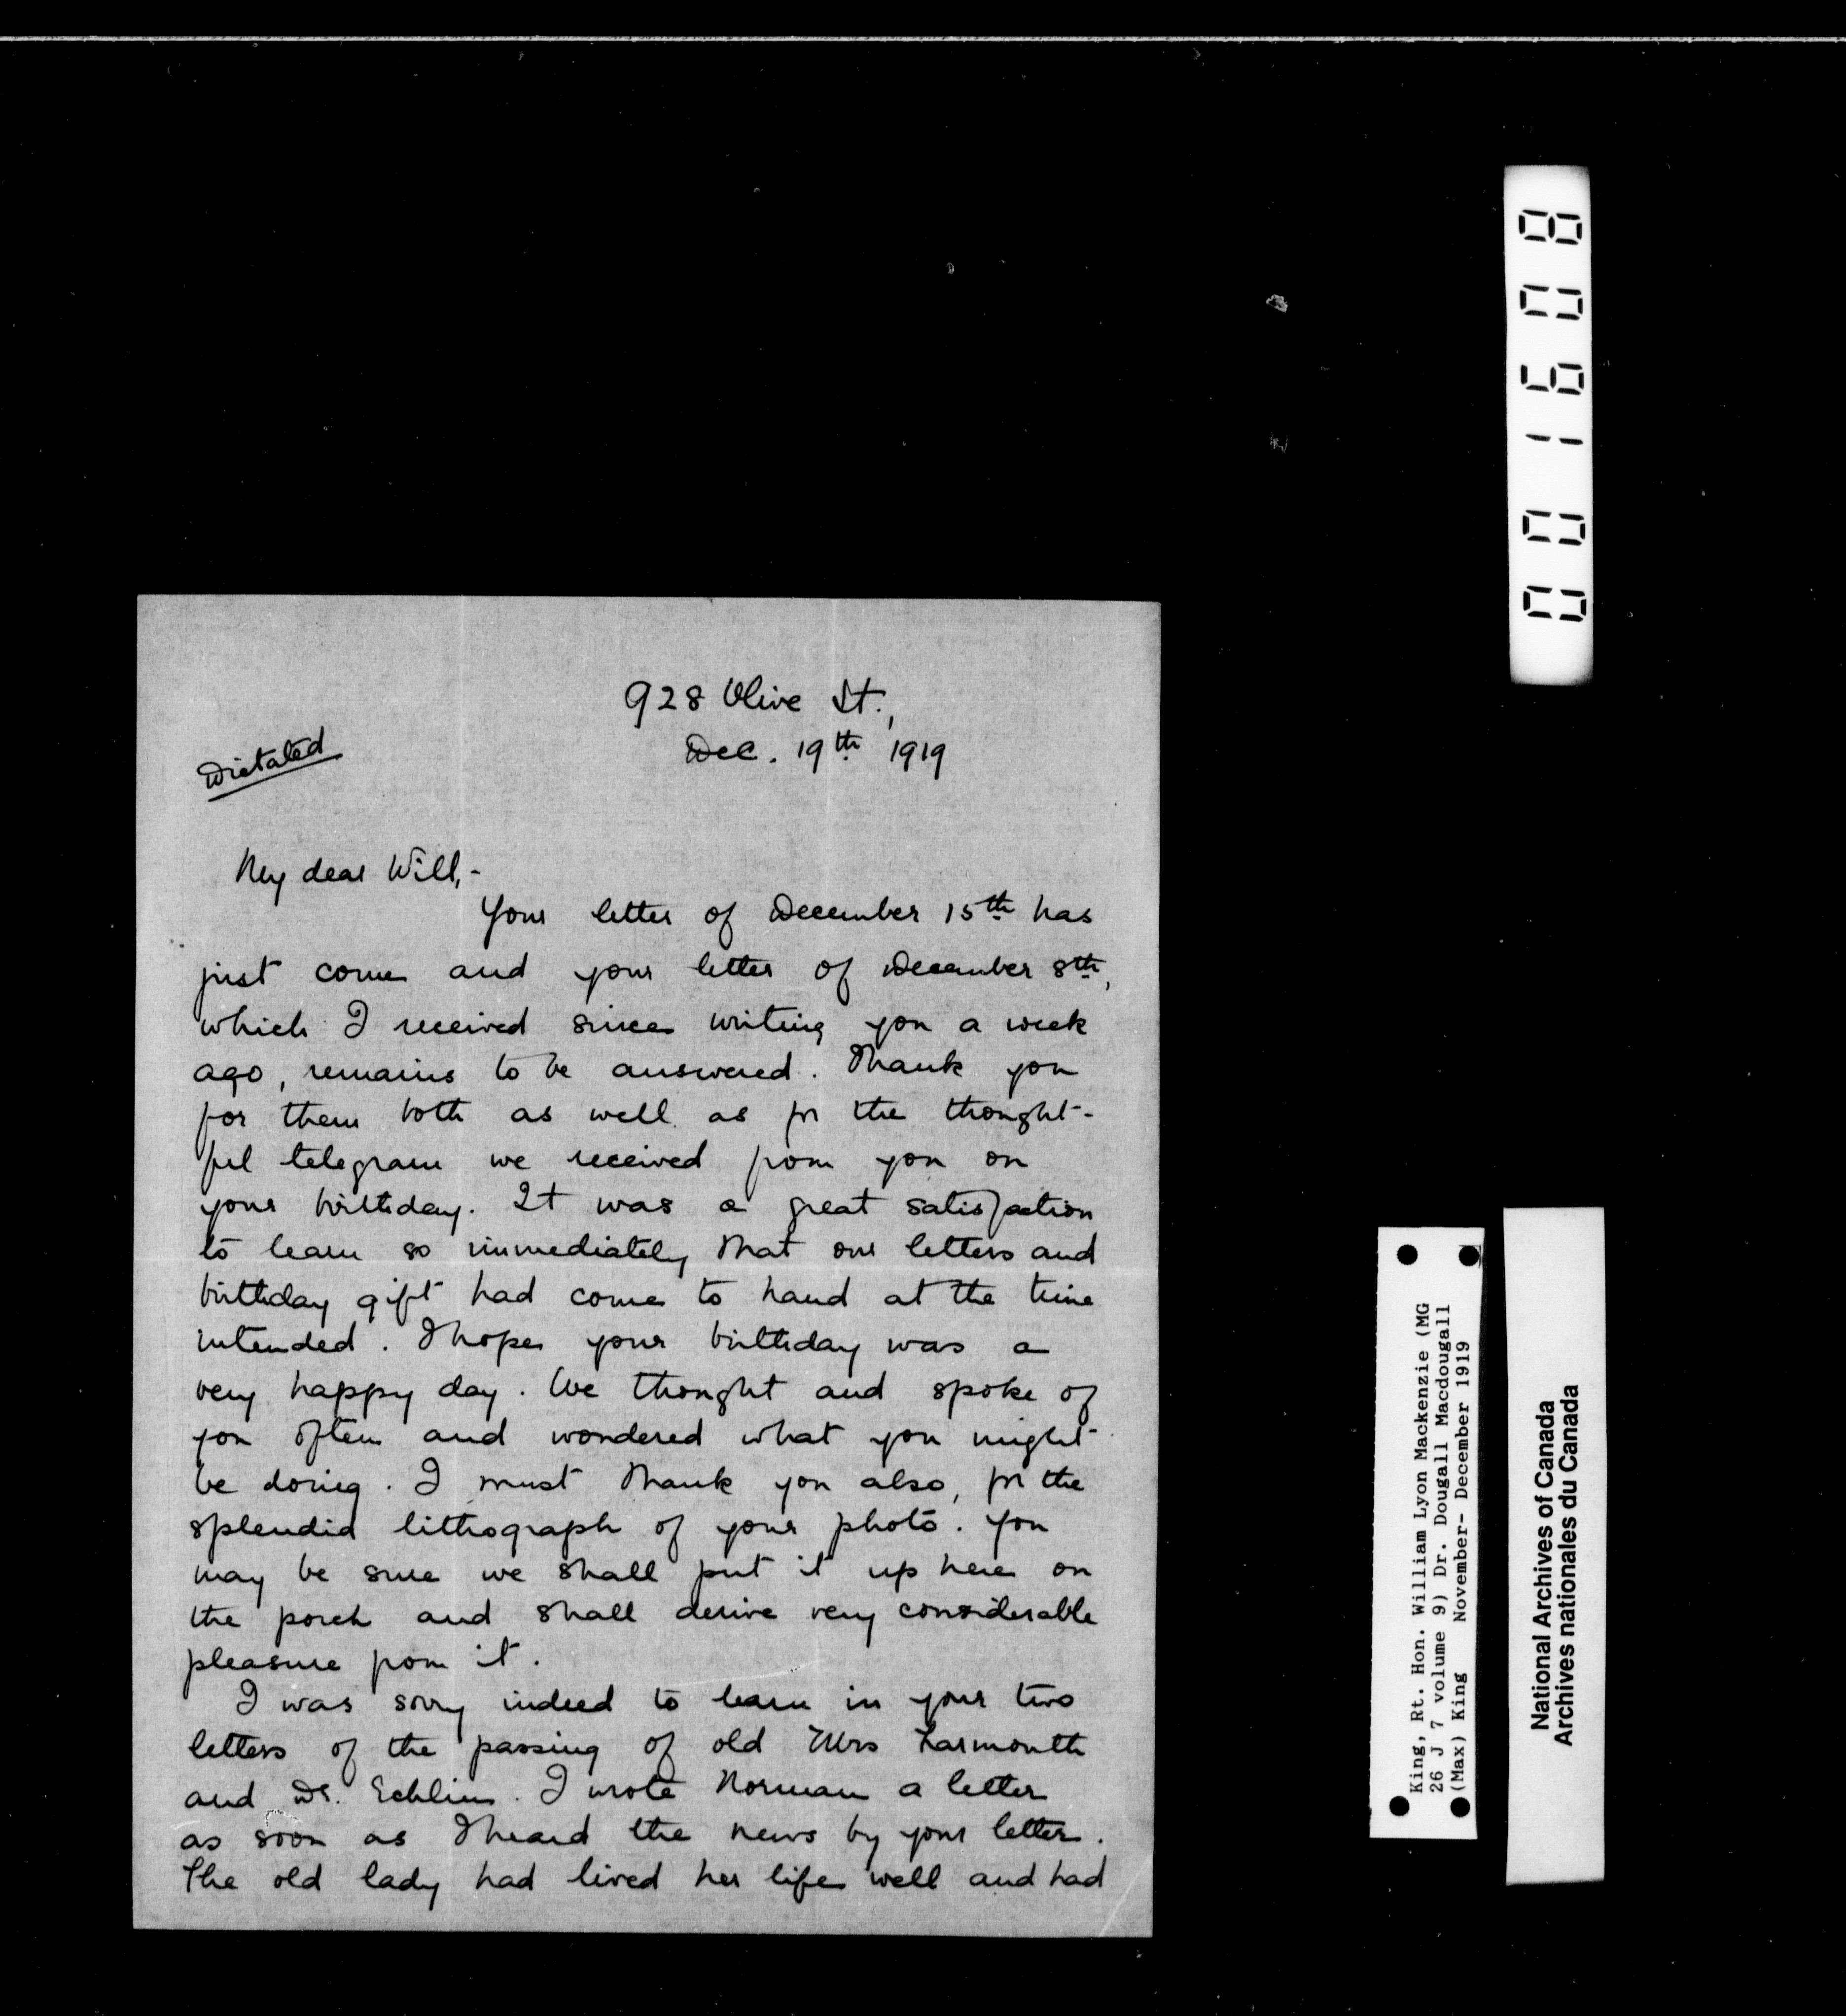 928 Olive St.,
Dec. 19th 1919
Dictated
My dear Will,-
Your letter of December 15th has
just come and your letter of December 8th,
which I received since writing you a week
ago, remains to be answered. Thank you
for them both as well as for the thought-
ful telegram we received from you on
your birthday. It was a great satisfaction
to learn so immediately that our letters and
birthday gift had come to hand at the time
intended. I hope your birthday was a
very happy day. We thought and spoke of
you often and wondered what you might
be doing. I must thank you also, for the
splendid lithograph of your photo. You
may be sure we shall put it up here on
the porch and shall derive very considerable
pleasure from it.
I was sorry indeed to learn in your two
letters of the passing of old Mrs Larmonth
and Dr. Echlin. I wrote Norman a letter
as soon as I heard the news by your letter.
The old lady had lived her life well and had
001608
King, Rt. Hon. William Lyon Mackenzie (MG
26 J 7 volume 9) Dr. Dougall Macdougall
(Max) King November- December 1919
National Archives of Canada
Archives nationales du Canada